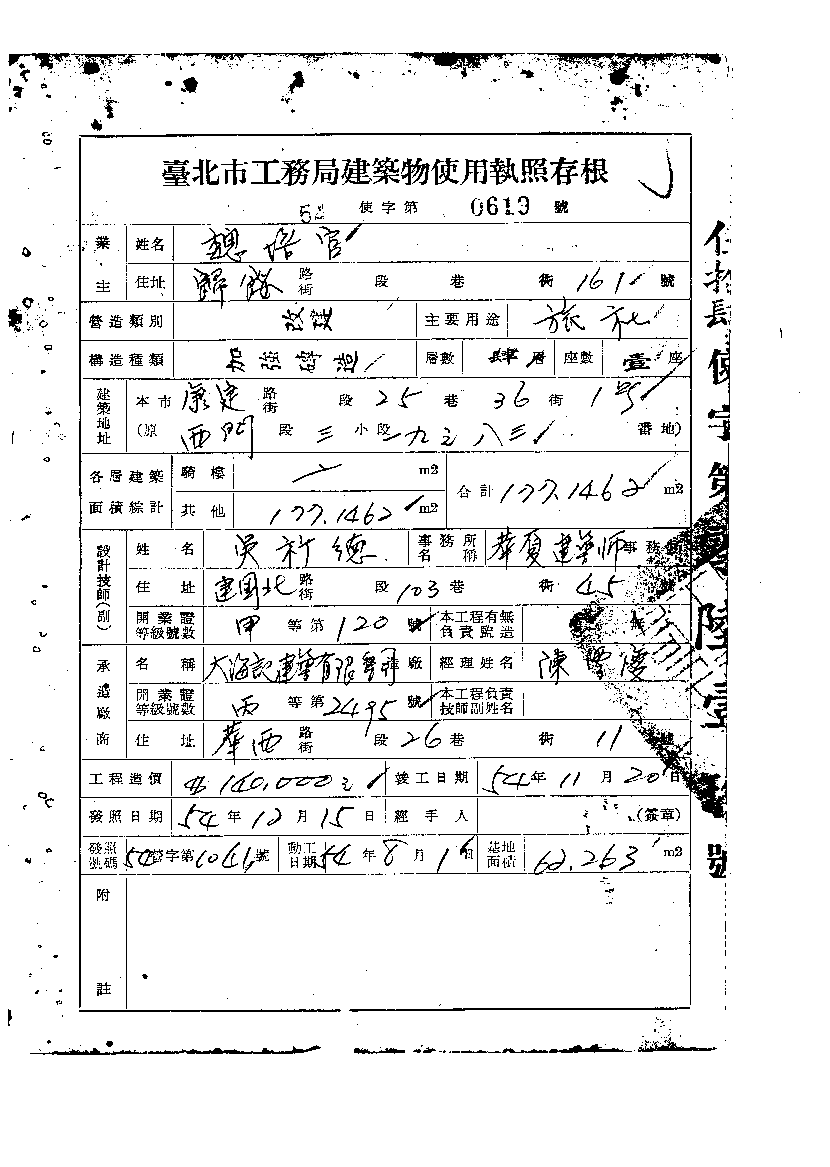 臺北市工務局建築物使用執照存根
54 使字第 0619 號
業主 姓名 趙培官
住址 歸綏 路街 段 巷 衖 161 號
營造類別 改建 主要用途 旅社
構造種類 加強磚造 層數 肆層 座數 壹座
建築地址 本市 康定 路街 段 25 巷 36 衖 1號
(原 西門 段 三 小段 番地)
各層建築面積綜計 騎樓 m2 合計 177.1462 m2
其他 177.1462 m2
設計技師(副) 姓名 吳 德 事務所名稱 華夏建築師事務所
住址 建國北 路街 段 103 巷 衖 45 號
開業證等級號數 甲 等第 120 號 本工程有無負責監造
承造廠商 名稱 大海記建築有限 廠 經理姓名 陳
開業證等級號數 丙 等第 2495 號 本工程負責技師副姓名
住址 華西 路街 段 26 巷 衖 11 號
工程造價 140,000元 竣工日期 54年11月20日
發照日期 54年12月15日 經手人 (簽章)
發照號碼 54營字第1041號 動工日期 54年8月1日 基地面積 62.263 m2
附註
伍拾肆使字第零陸壹玖號